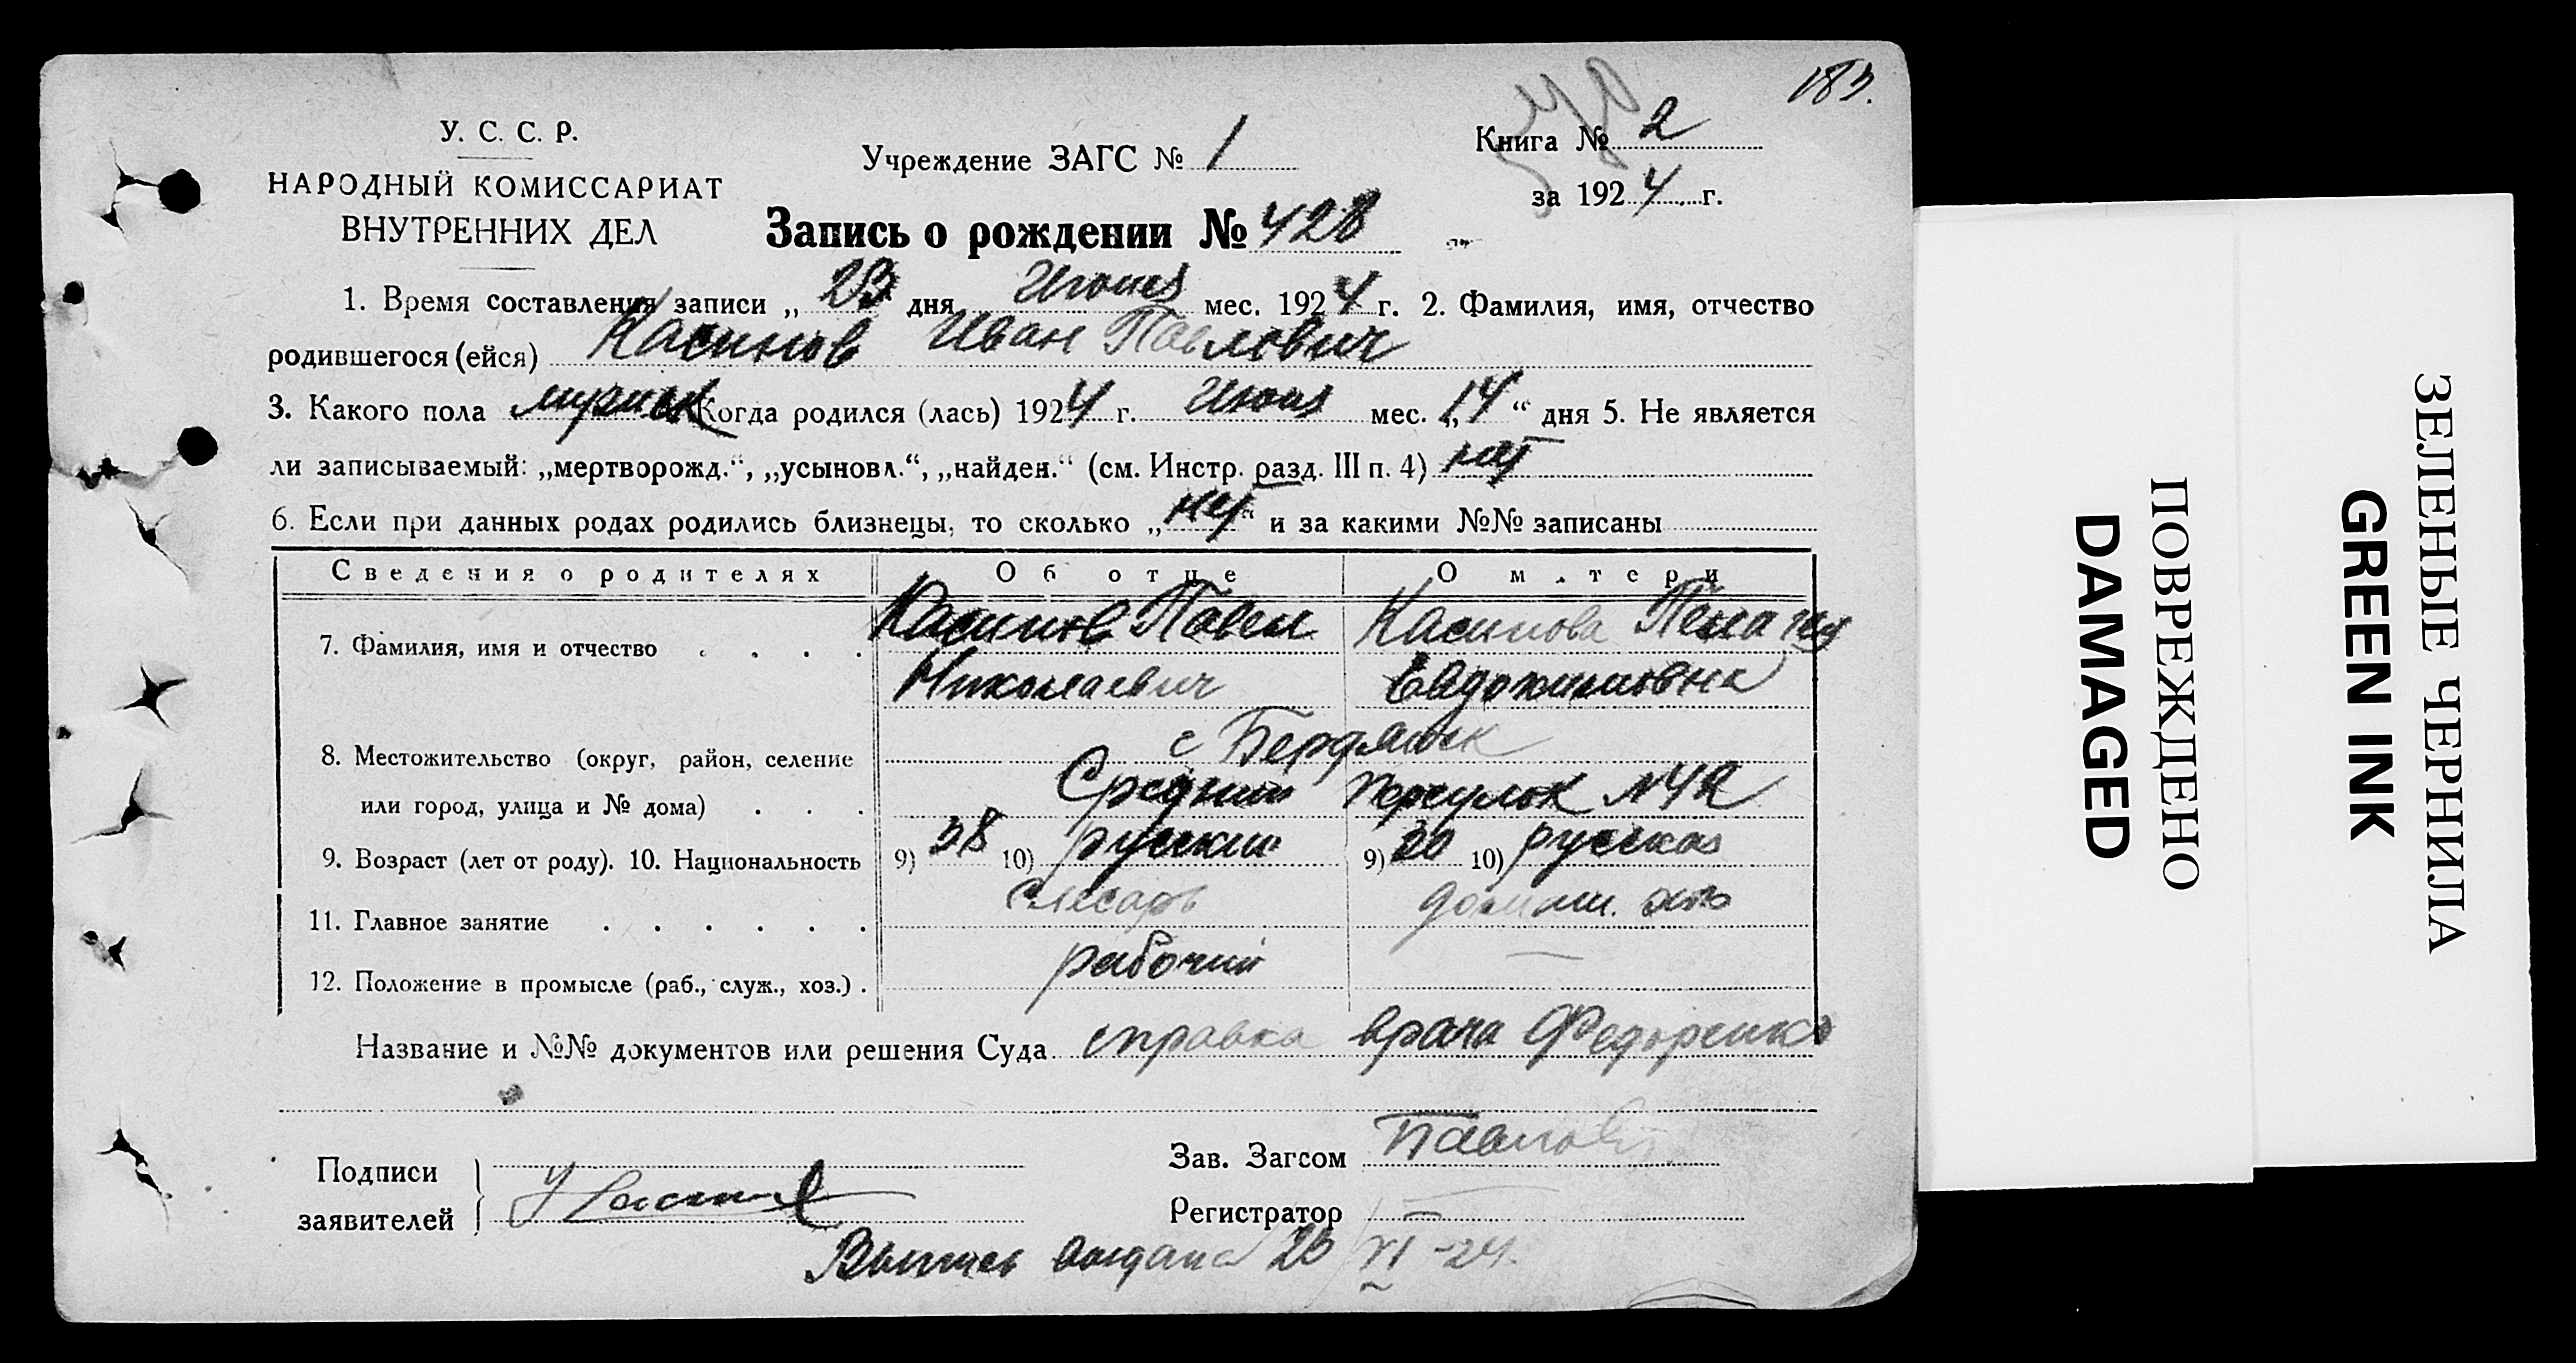 183.
У. С. С. Р.
НАРОДНЫЙ КОМИССАРИАТ
ВНУТРЕННИХ ДЕЛ
Учреждение ЗАГС № 1
Книга № 2
за 1924 г.
Запись о рождении № 428
1. Время составления записи „ 23 дня Июня мес. 1924 г. 2. Фамилия, имя, отчество
родившегося (ейся) Касинов Иван Павлович
3. Какого пола мужск Когда родился (лась) 1924 г. Июня мес. „14“ дня 5. Не является
ли записываемый: „мертворожд.“, „усыновл.“, „найден.“ (см. Инстр. разд. III п. 4) нет
6. Если при данных родах родились близнецы, то сколько „нет“ и за какими №№ записаны
Сведения о родителях Об отце О матери
7. Фамилия, имя и отчество . . . . Касинов Павел Касинова
Николаевич Евдокимовна
8. Местожительство (округ, район, селение г Бердянск
или город, улица и № дома) . . . Средний переулок №42
9. Возраст (лет от роду). 10. Национальность 9) 38 10) русский 9) 30 10) русская
11. Главное занятие . . . . . . слесарь домаш. хоз
12. Положение в промысле (раб., служ., хоз.) . рабочий —
Название и №№ документов или решения Суда справка врача Федоренко
Подписи
заявителей
Зав. Загсом Павлов
Регистратор
Выпись выдана 23/VI-24.
ПОВРЕЖДЕНО
DAMAGED
ЗЕЛЕНЫЕ ЧЕРНИЛА
GREEN INK